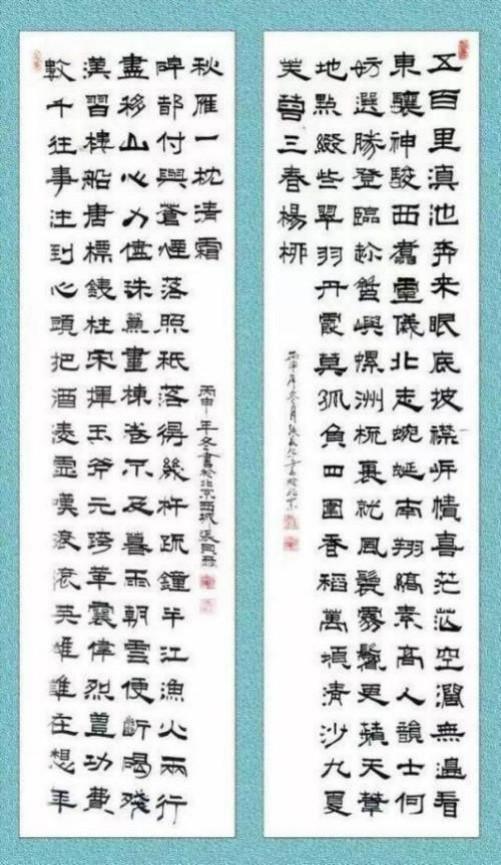 五百里滇池奔來眼底披襟岸幘喜茫茫空濶無邊看
東驤神駿西翥靈儀北走蜿蜒南翔縞素高人韻士何
妨選勝登臨趁蟹嶼螺洲梳裹就風鬟霧鬢更蘋天葦
地點綴些翠羽丹霞莫孤負四圍香稻萬頃清沙九夏
芙蓉三春楊柳
丙申年冬月張書於北京
數千往事注到心頭把酒凌虛嘆滾滾英雄誰在想年
漢習樓船唐標鐵柱宋揮玉斧元跨革囊偉烈豐功費
盡移山心力儘珠簾畫棟卷不及暮雨朝雲便斷碣殘
碑都付與蒼煙落照祇落得幾杵疏鐘半江漁火兩行
秋雁一枕清霜
丙申年冬書於北京西城張